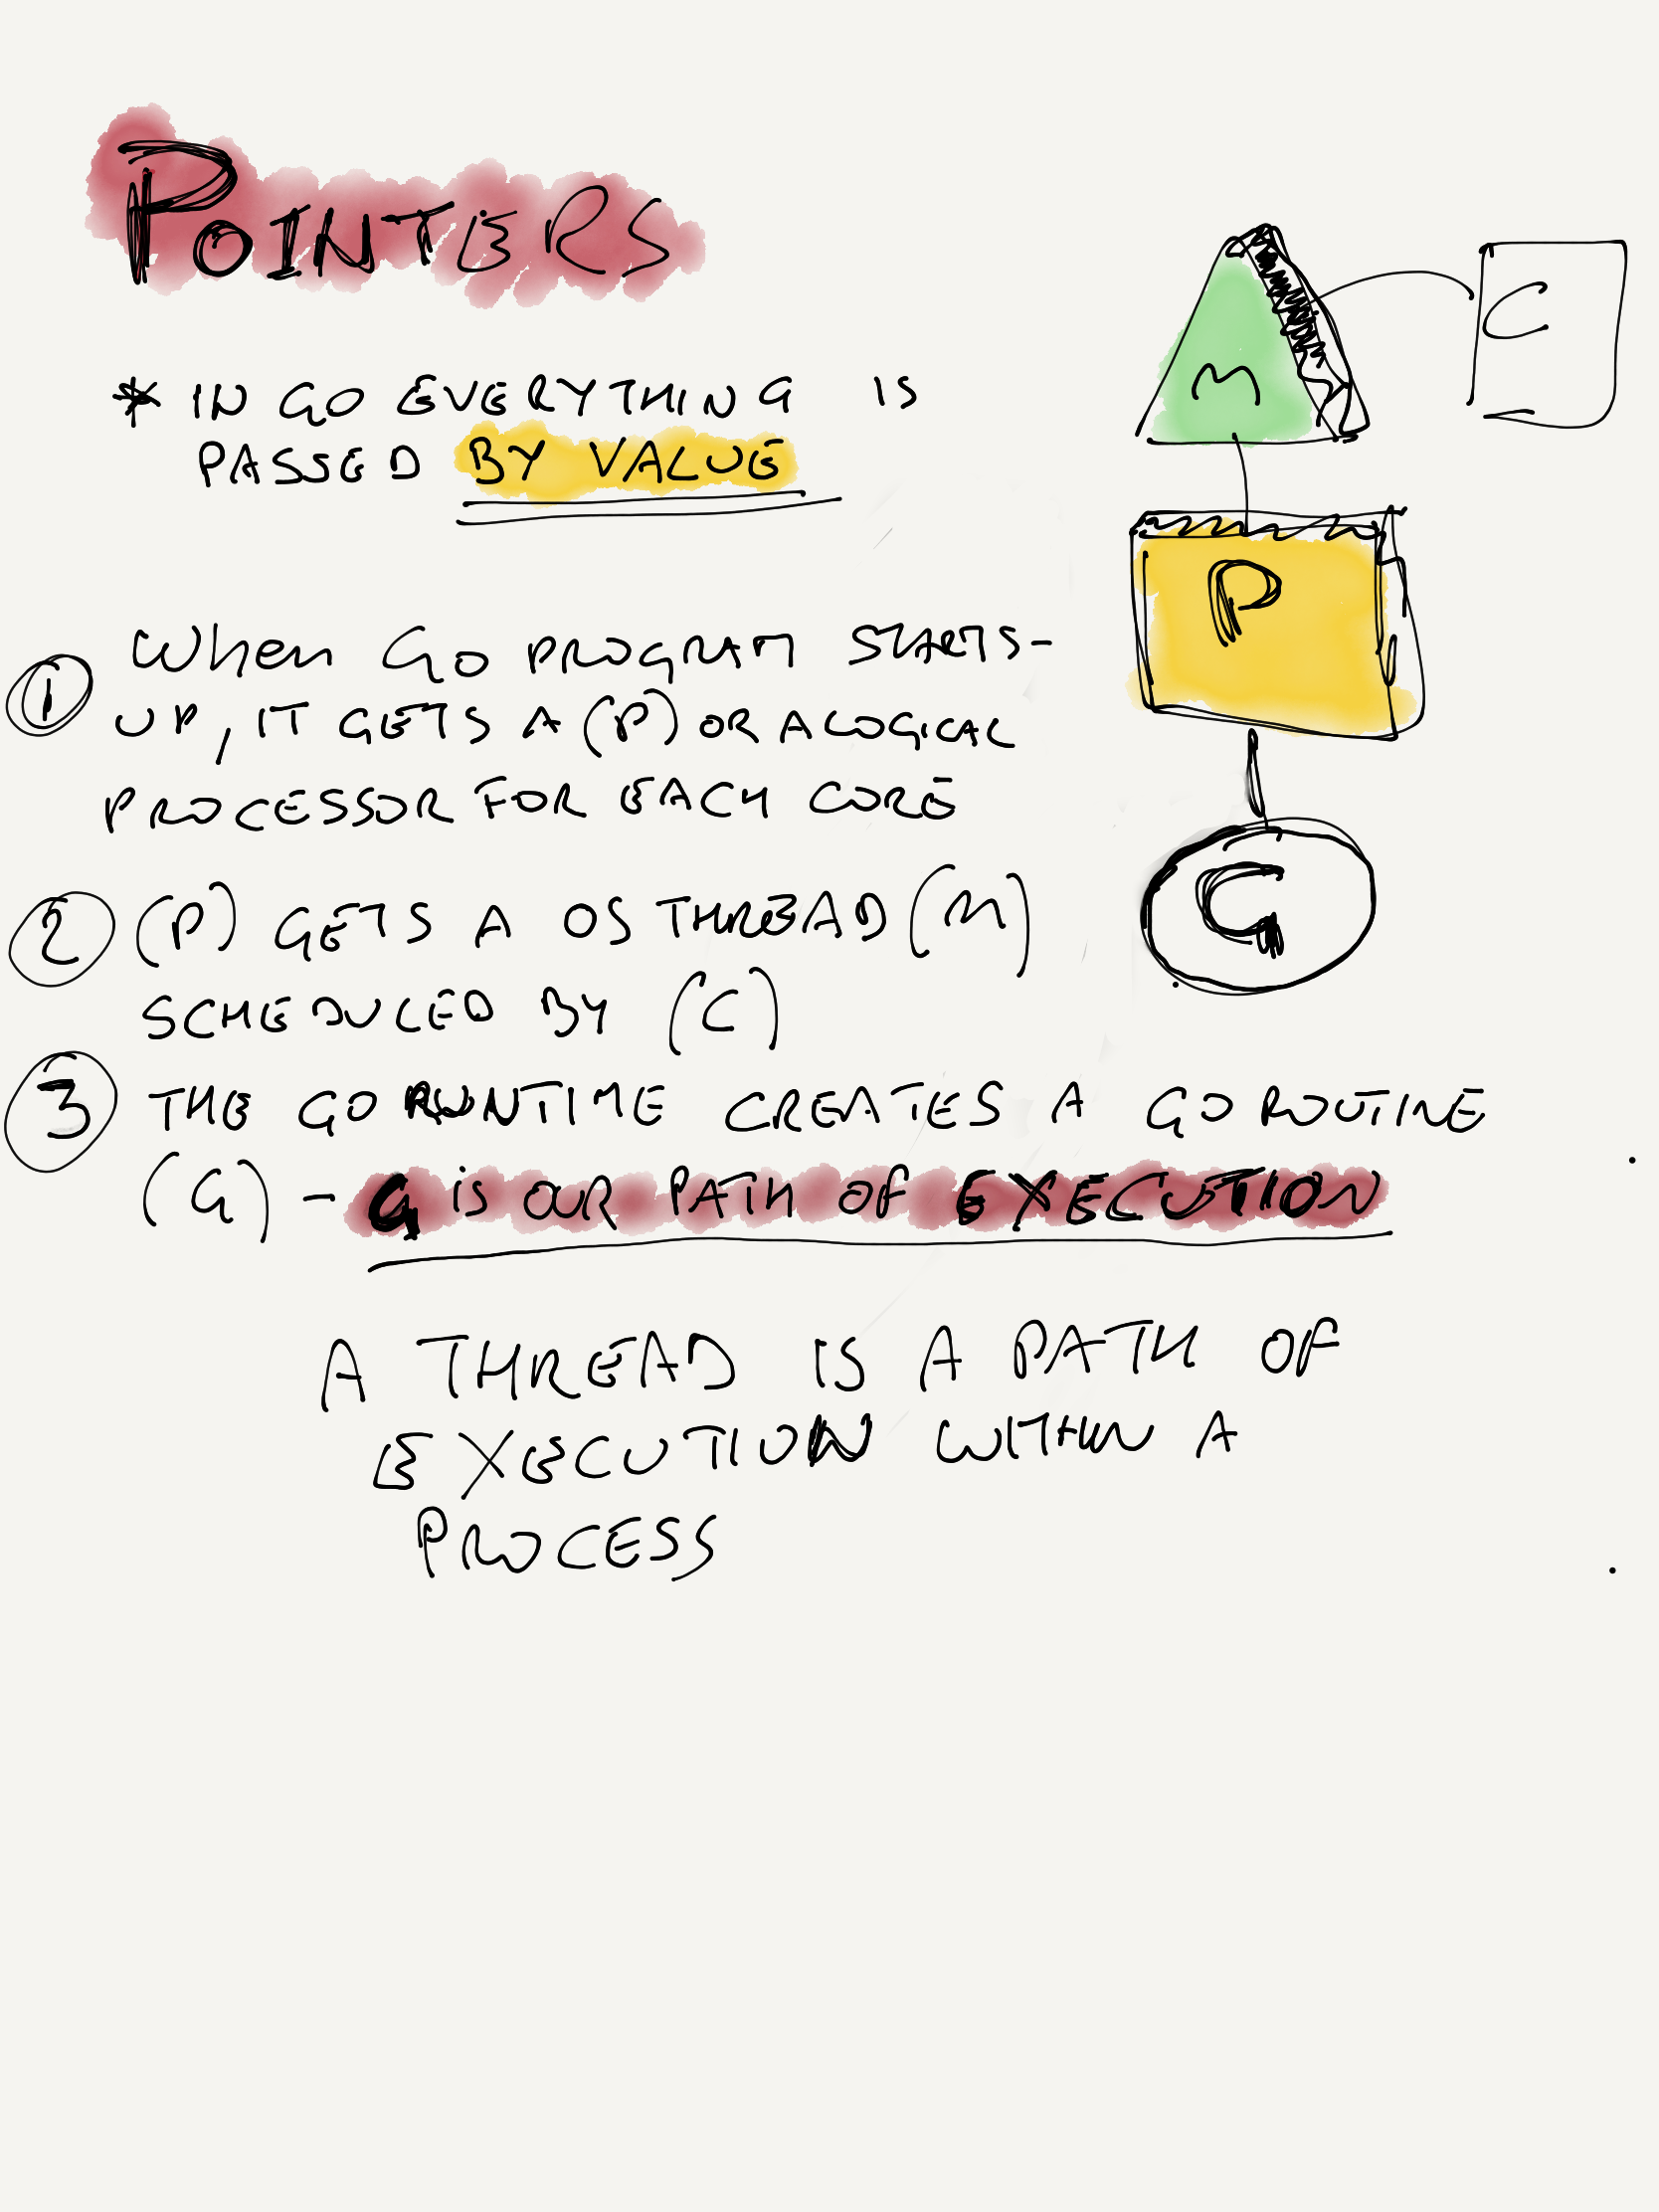 POINTERS
* IN GO EVERYTHING IS
PASSED BY VALUE
M
C
P
G
1 When Go PROGRAM STARTS-
UP, IT GETS A (P) OR A LOGICAL
PROCESSOR FOR EACH CORE
2 (P) GETS A OS THREAD (M)
SCHEDULED BY (C)
3 THE GO RUNTIME CREATES A GO ROUTINE
(G) - G is OUR PATH OF EXECUTION
A THREAD IS A PATH OF
EXECUTION WITHIN A
PROCESS